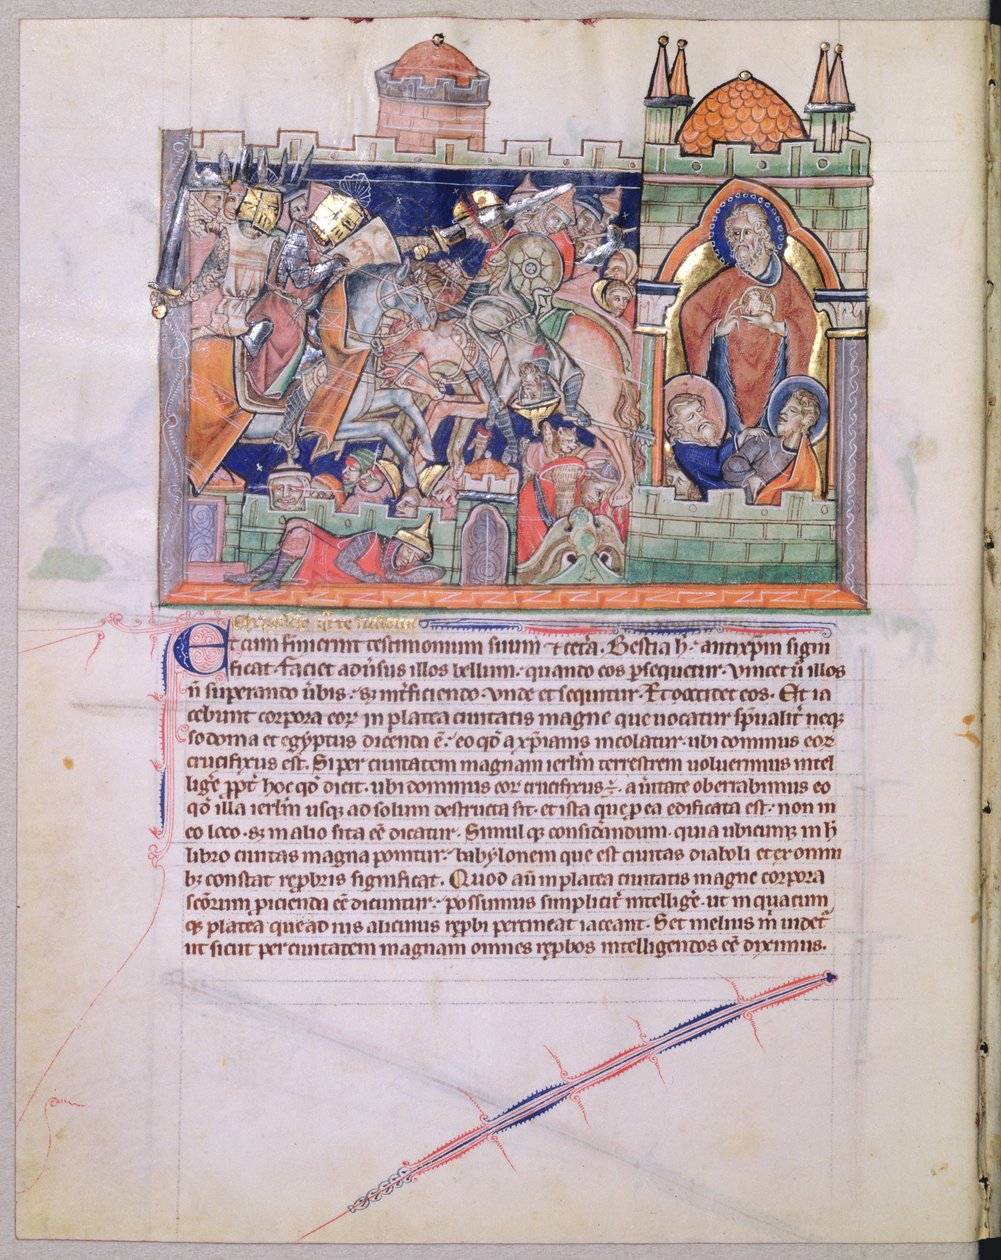 Et cum finierint testimonium suum · ⁊ cetera. Bestia h̅ · antixp̅m signi
ficat · faciet adũsus illos bellum · quando eos p̱sequetur · Vincet ũ illos
n̅ superando ũbis · sꝫ int̅ficiendo · vnde et sequitur · Et occidet eos · Et ia
cebunt corpora eoꝝ in platea ciuitatis magne que uocatur sp̅ualit̅ neqꝫ
sodoma et egyptus dicenda e̅ · eo qd̅ a xp̅ianis incolatur · ubi dominus eoꝝ
crucifixus est. Si per ciuitatem magnam ierl̅m terrestrem uoluerimus intel
lige̅ · p̱pt̅ hoc qd̅ dicit · ubi dominus eoꝝ crucifixus · a ũitate oberrabimus eo
qd̅ illa ierl̅m usqꝫ ad solum destructa sit · et ista que p̱ ea edificata est · non in
eo loco · sꝫ in alio sita ee̅ dicatur · Simul qꝫ considandum · quia ubicumqꝫ in h̅
libro ciuitas magna ponitur · babylonem que est ciuitas diaboli et ex omni
bꝫ constat rep̱bris significat. Quod au̅ in platea ciuitatis magne corpora
sc̅orum p̱icienda ee̅ dicuntur · possumus simplicit̅ intellige̅ · ut in quacum
qꝫ platea que ad ius alicuius rep̱bi pertineat iaceant · Set melius m̅ uidet̅
ut sicut per ciuitatem magnam omnes rep̱bos intelligendos ee̅ diximus.